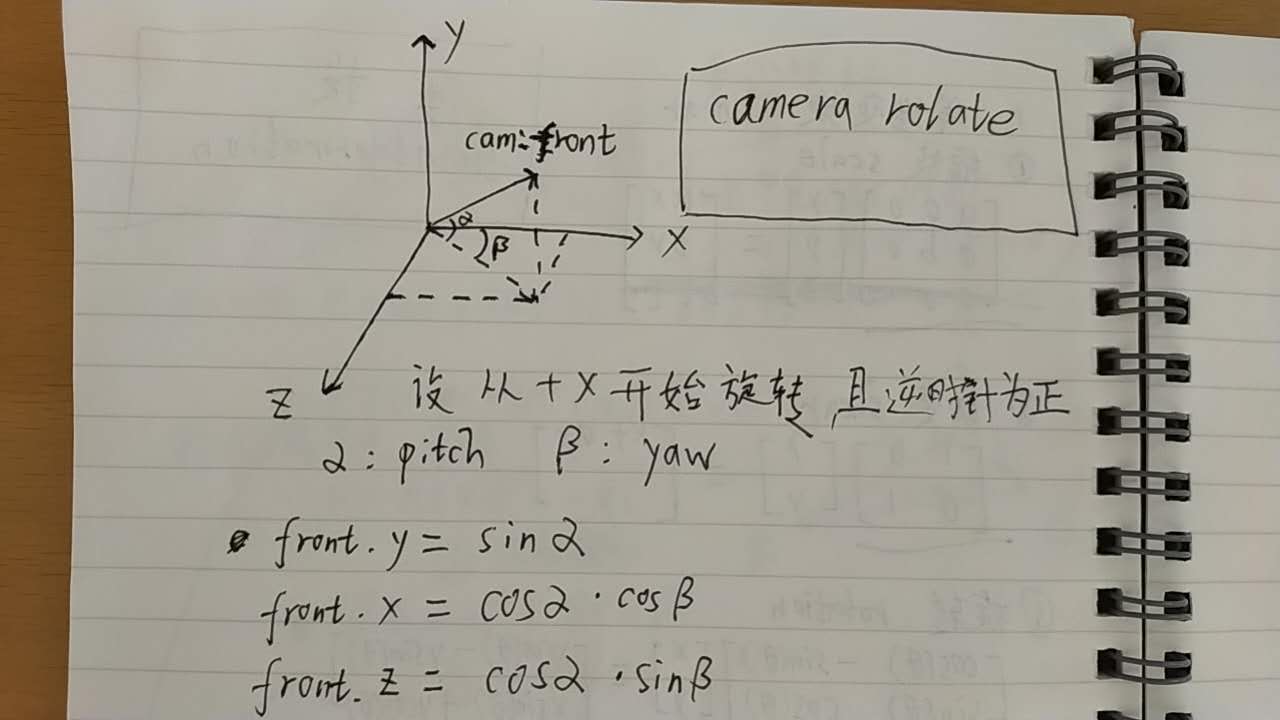 Y
camera rotate
cam:front
α
β
X
Z
设从+X开始旋转,且逆时针为正
α: pitch β: yaw
front.y = sinα
front.x = cosα·cosβ
front.z = cosα·sinβ